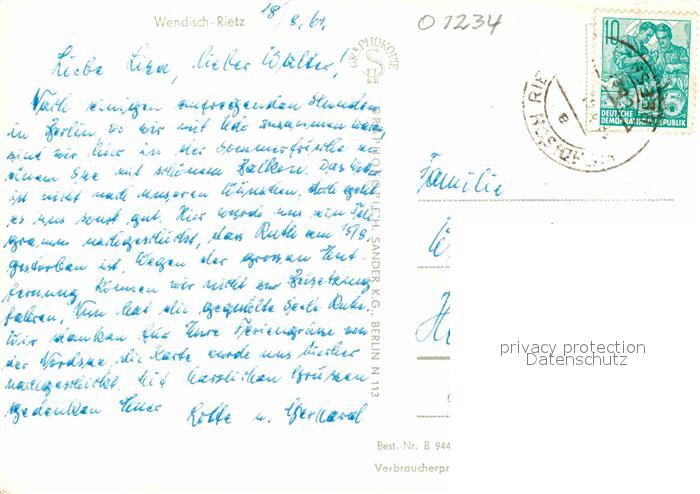 Wendisch-Rietz
18/8.61.
01234
Liebe Lisa, lieber Walter!
Nach einigen aufregenden Stunden
in Berlin wo wir mit zusammen waren,
sind wir hier in der Sommerfrische an
einem See mit schönem Balkon. Das
ist nicht nach unseren Wünschen, doch geht
es uns sonst gut. Hier wurde uns ein Tele
gramm nachgeschickt, dass Ruth am 15/8.
gestorben ist. Wegen der grossen Ent
fernung können wir nicht zur Beisetzung
fahren. Nun hat die gequälte Seele Ruhe.
Wir danken für Eure Feriengrüsse von
der Nordsee, die Karte wurde uns hierher
nachgeschickt. Mit herzlichen Grüssen
gedenken Euer Lotte u. Gerhard
GRAPHOKOPIE
GRAPHOKOPIE H. SANDER K.G., BERLIN N 113
10
DEUTSCHE
DEMOKRATISCHE REPUBLIK
Familie
privacy protection
Datenschutz
Best.-Nr. B 944
Verbraucherpr